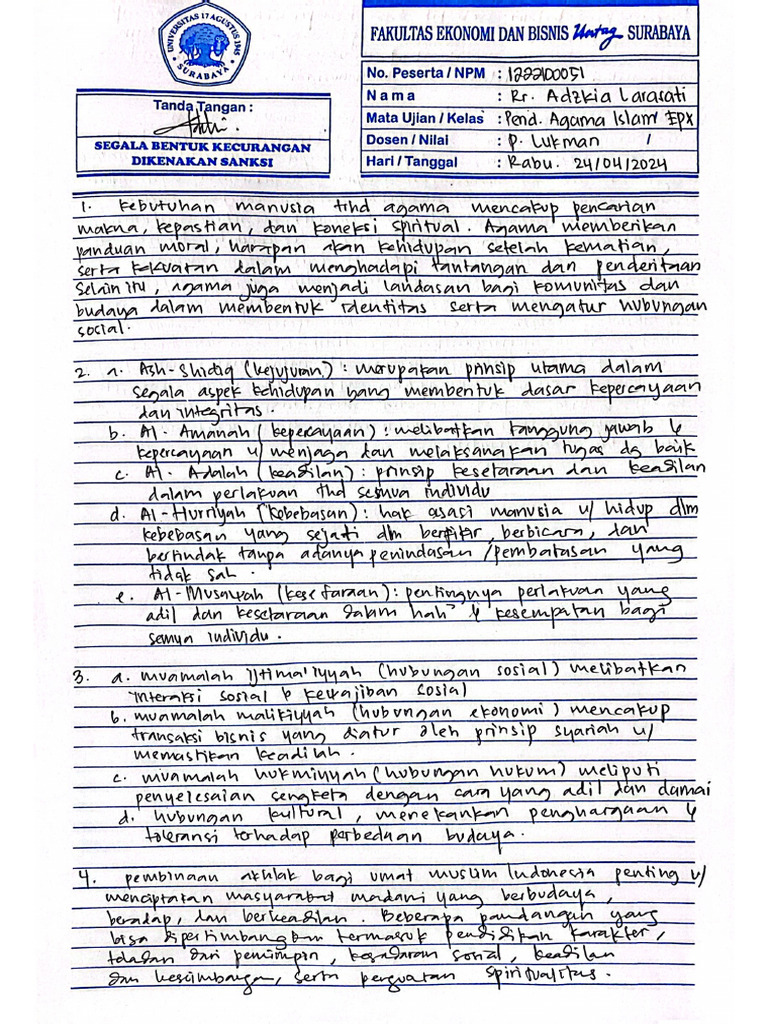 UNIVERSITAS 17 AGUSTUS 1945
SURABAYA
FAKULTAS EKONOMI DAN BISNIS Untag SURABAYA
No. Peserta / NPM : 1222100051
Nama : Rr. Adzkia Larasati
Mata Ujian / Kelas : Pend. Agama Islam EPX
Dosen / Nilai : P. Lukman /
Hari / Tanggal : Rabu. 24/04/2024
Tanda Tangan :
SEGALA BENTUK KECURANGAN
DIKENAKAN SANKSI
1. Kebutuhan manusia thd agama mencakup pencarian
makna, kepastian, dan koneksi spiritual. Agama memberikan
panduan moral, harapan akan kehidupan setelah kematian,
serta kekuatan dalam menghadapi tantangan dan penderitaan
Selain itu, agama juga menjadi landasan bagi komunitas dan
budaya dalam membentuk identitas serta mengatur hubungan
sosial.
2. a. Ash-Shidiq (kejujuran) : merupakan prinsip utama dalam
segala aspek kehidupan yang membentuk dasar kepercayaan
dan integritas.
b. Al-Amanah (kepercayaan) : melibatkan tanggung jawab &
kepercayaan u/ menjaga dan melaksanakan tugas dg baik
c. Al-Adalah (keadilan) : prinsip kesetaraan dan keadilan
dalam perlakuan thd semua individu
d. Al-Hurriyah (kebebasan) : hak asasi manusia u/ hidup dlm
kebebasan yang sejati dlm berfikir, berbicara, dan
bertindak tanpa adanya penindasan / pembatasan yang
tidak sah.
e. Al-Musawah (kesetaraan) : pentingnya perlakuan yang
adil dan kesetaraan dalam hak² & kesempatan bagi
semua individu.
3. a. muamalah ijtima'iyyah (hubungan sosial) melibatkan
interaksi sosial & kewajiban sosial
b. muamalah malikiyyah (hubungan ekonomi) mencakup
transaksi bisnis yang diatur oleh prinsip syariah u/
memastikan keadilah.
c. muamalah hukmiyyah (hubungan hukum) meliputi
penyelesaian sengketa dengan cara yang adil dan damai
d. hubungan kultural, menekankan penghargaan &
toleransi terhadap perbedaan budaya.
4. pembinaan akhlak bagi umat muslim Indonesia penting u/
menciptakan masyarabat madani yang berbudaya,
beradap, dan berkeadilan. Beberapa pandangan yang
bisa dipertimbangkan termasuk pendidikan karakter,
teladan dari pemimpin, kesadaran sosial, keadilan
dan keseimbangan, serta penguatan spiritualitas.